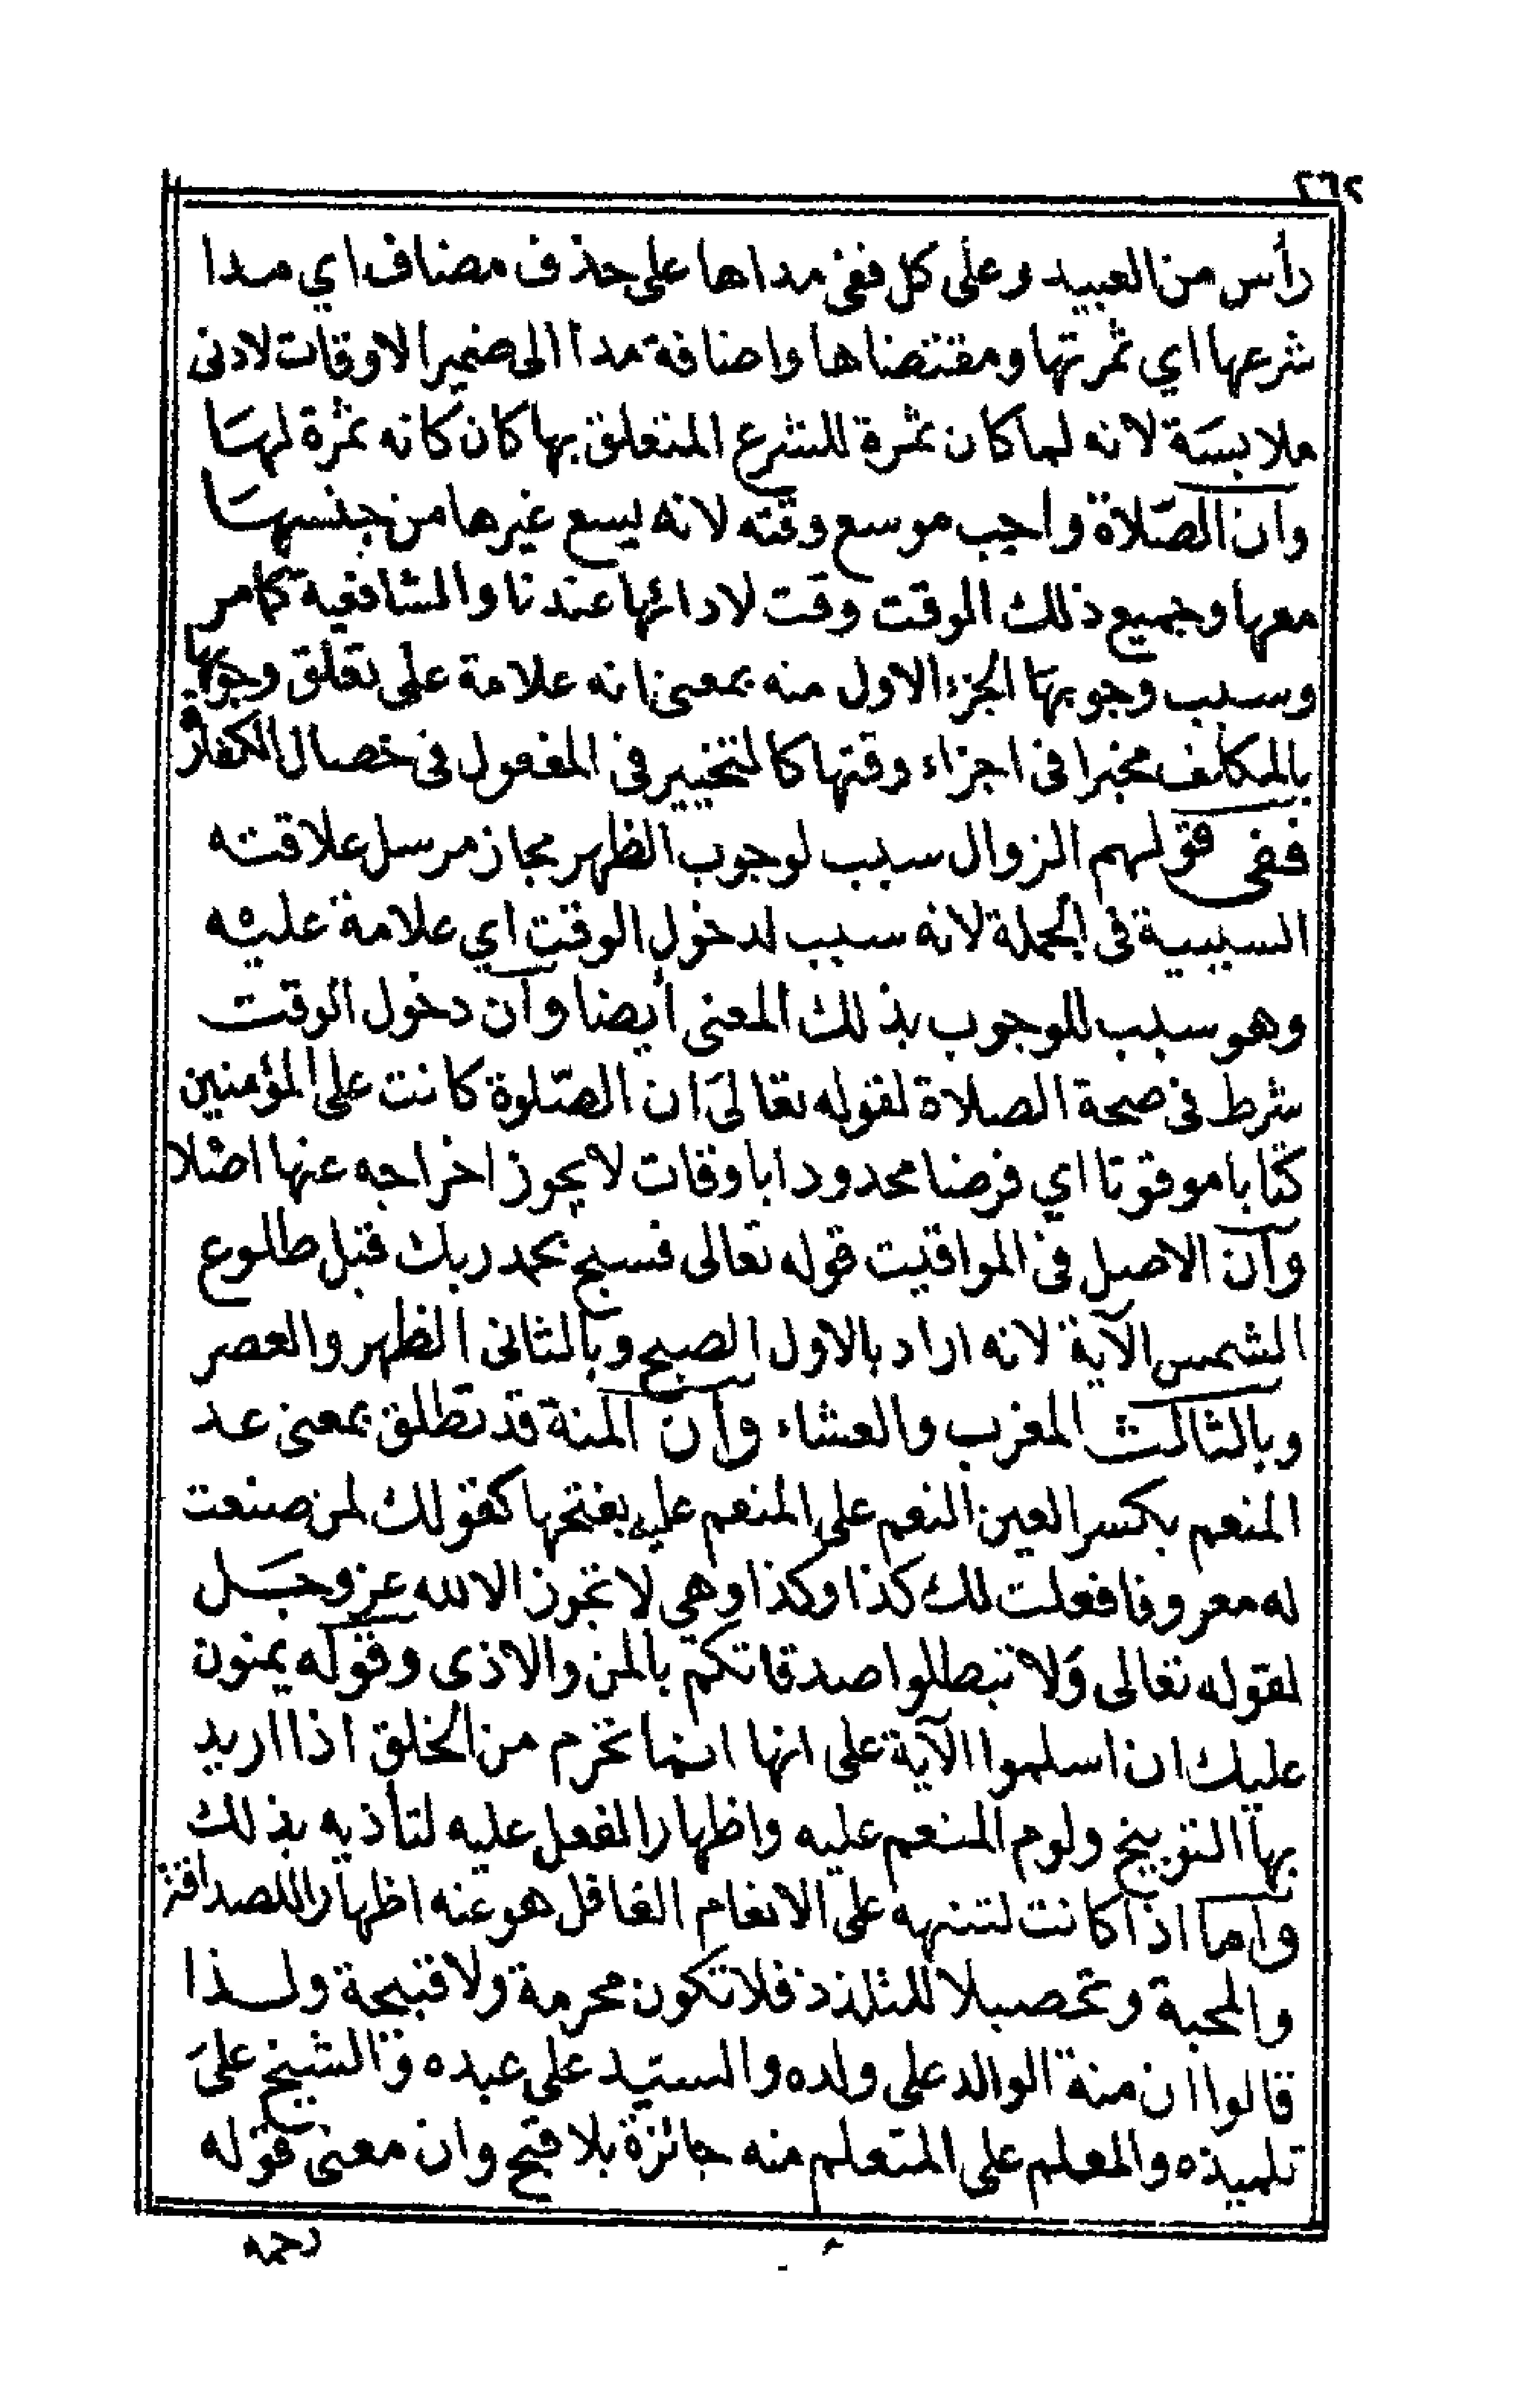 ٢٦٢
رأس من العبيد وعلى كل ففى مداها على حذف مضاف اي مدا
شرعها اي ثمرتها ومقتضاها واضافة مدا الى ضمير الاوقات لادنى
ملابسة لانه لما كان ثمرة للشرع المتعلق بها كان كانه ثمرة لها
وان الصّلاة واجب موسع وقته لانه يسع غيرها من جنسها
معها وجميع ذلك الوقت وقت لادائها عندنا والشافعية كما مر
وسبب وجوبها الجزء الاول منه بمعنى انه علامة على تعلق وجوبها
بالمكلف مخيرا فى اجزاء وقتها كالتخيير فى المفعول فى خصال الكفارة
ففى قولهم الزوال سبب لوجوب الظهر مجاز مرسل علاقته
السببية فى الجملة لانه سبب لدخول الوقت اي علامة عليه
وهو سبب للوجوب بذلك المعنى أيضا وان دخول الوقت
شرط فى صحة الصلاة لقوله تعالىَ ان الصّلوة كانت على المؤمنين
كتابا موقوتا اي فرضا محدودا باوقات لا يجوز اخراجه عنها اصلا
وان الاصل فى المواقيت قوله تعالى فسبح بحمد ربك قبل طلوع
الشمس الآية لانه اراد بالاول الصبح وبالثانى الظهر والعصر
وبالثالث المغرب والعشاء وان المنة قد تطلق بمعنى عد
المنعم بكسر العين النعم على المنعم عليه بفتحها كقولك لمن صنعت
له معروفا فعلت لك كذا وكذا وهي لا تجوز الا لله عز وجل
لقوله تعالى وَلا تبطلوا صدقاتكم بالمن والاذى وقوله يمنون
عليك ان اسلموا الآية على انها انما تحرم من الخلق اذا اريد
بها التوبيخ ولوم المنعم عليه واظهار الفعل عليه لتأذيه بذلك
واما اذا كانت لتنبهه على الانعام الغافل هو عنه اظهارا للصداقة
والمحبة وتحصيلا للتلذذ فلا تكون محرمة ولا قبيحة ولذا
قالوا ان منة الوالد على ولده والسيّد على عبده والشيخ علىَ
تلميذه والمعلم على المتعلم منه جائزة بلا قبح وان معنى قوله
رحمه